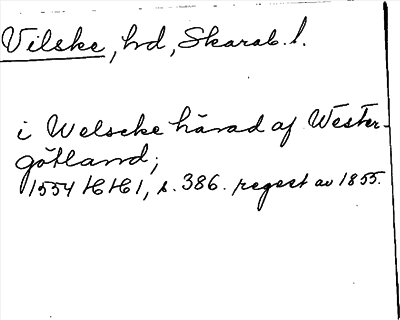 Vilske, hd, Skarab. l.
i Welscke härad af Wester-
götland;
1554 HH 1, s. 386. regest av 1855.